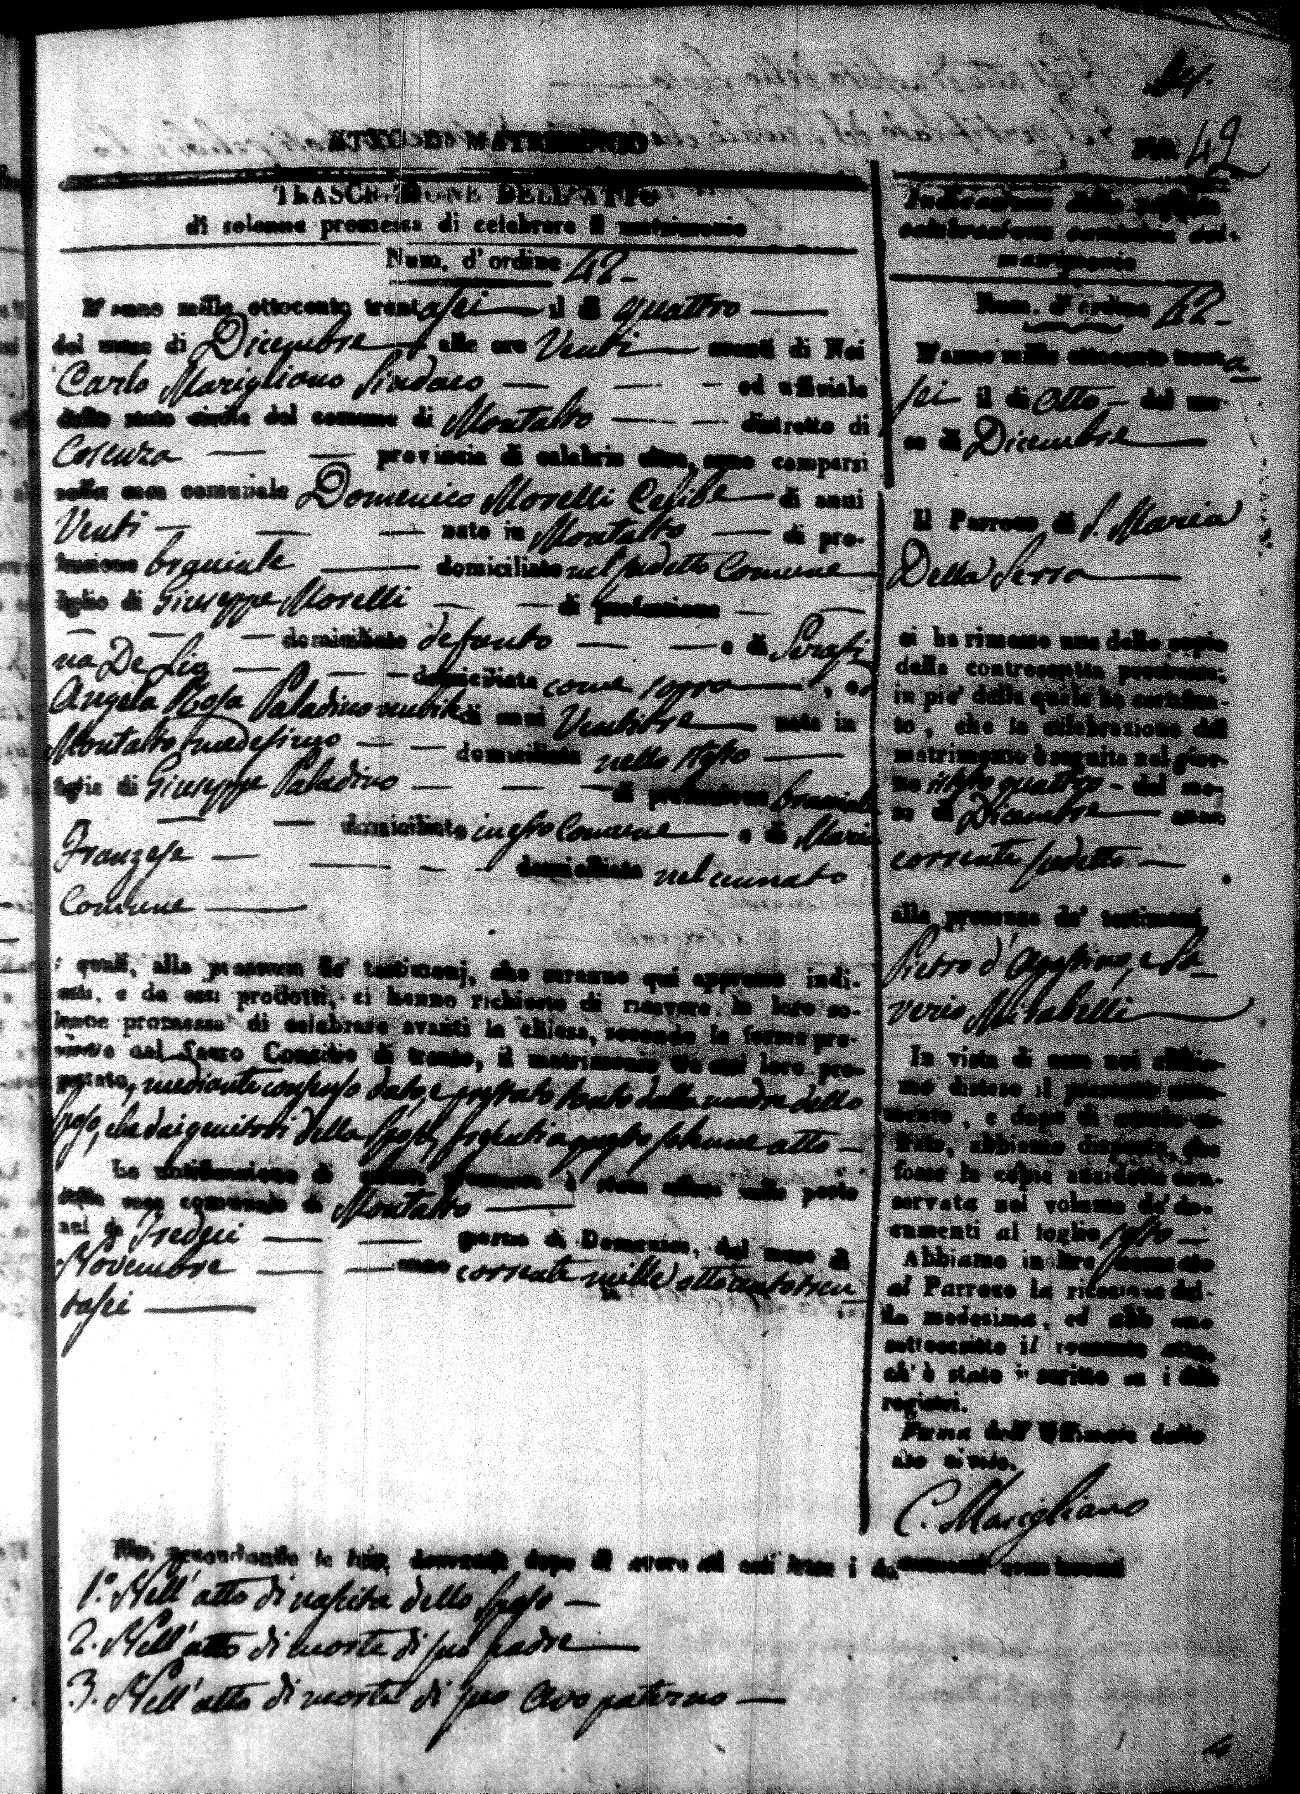 ATTO DI MATRIMONIO
42
TRASCRIZIONE DELL'ATTO
di solenne promessa di celebrare il matrimonio
Num. d'ordine 42-
L'anno mille ottocento trentasei il di quattro
del mese di Dicembre alle ore Venti avanti di Noi
Carlo Marigliano Sindaco ed uffiziale
dello stato civile del comune di Montalto distretto di
Cosenza provincia di calabria citra, sono comparsi
nella casa comunale Domenico Morelli Celibe di anni
Venti nato in Montalto di pro-
fessione bracciale domiciliato nel sudetto Comune
figlio di Giuseppe Morelli di professione
domiciliato defunto e di Serafi
na De Lio domiciliata come sopra, ed
Angela Rosa Paladino nubile di anni Ventitre nata in
Montalto medesimo domiciliata nello stesso
figlia di Giuseppe Paladino di professione bracciale
domiciliato in esso Comune e di Maria
Franzese domiciliata nel cennato
Comune
i quali, alla presenza de' testimonj, che saranno qui appresso indi-
cati, e da essi prodotti, ci hanno richiesto di ricevere la loro so-
lenne promessa di celebrare avanti la chiesa, secondo le forme pre-
scritte dal Sacro Concilio di trento, il matrimonio tra essi loro pro-
gettato, mediante consenso dato, e prestato tanto dalla madre dello
sposo, che dai genitori della sposa, presenti a questo solenne atto
La notificazione di questa promessa è stata affissa sulla porta
della casa comunale di Montalto
nel dì Tredeci giorno di Domenica, del mese di
Novembre anno corrente mille ottocento tren
tasei
Noi, secondando la loro domanda dopo di avere ad essi letto i documenti
1.° Nell'atto di nascita dello sposo
2. Nell'atto di morte di suo padre
3. Nell'atto di morte di suo avo paterno
Indicazione della seguita
celebrazione canonica del
matrimonio
Num. d'ordine 42-
L'anno mille ottocento trenta
sei il di otto del me-
se di Dicembre
Il Parroco di S. Maria
Della Serra
ci ha rimesso una delle copie
della controscritta promessa,
in piè della quale ha certifica-
to, che la celebrazione del
matrimonio è seguita nel gior-
no istesso quattro del me-
se di Dicembre anno
corrente sudetto
alla presenza de' testimoni
Pietro d'Agostino, e Sa-
verio Mirabelli
In vista di essa noi abbia-
mo disteso il presente notamento, e dopo di averlo
fosse la copia anzidetta con-
servata nel volume de' do-
cumenti al foglio
Abbiamo in oltre
al Parroco la ricezione del-
la medesima, ed abbiamo
sottoscritto il presente atto,
ch'è stato iscritto su i due
registri.
Firma dell'Uffiziale dello
stato civile.
C. Marigliano